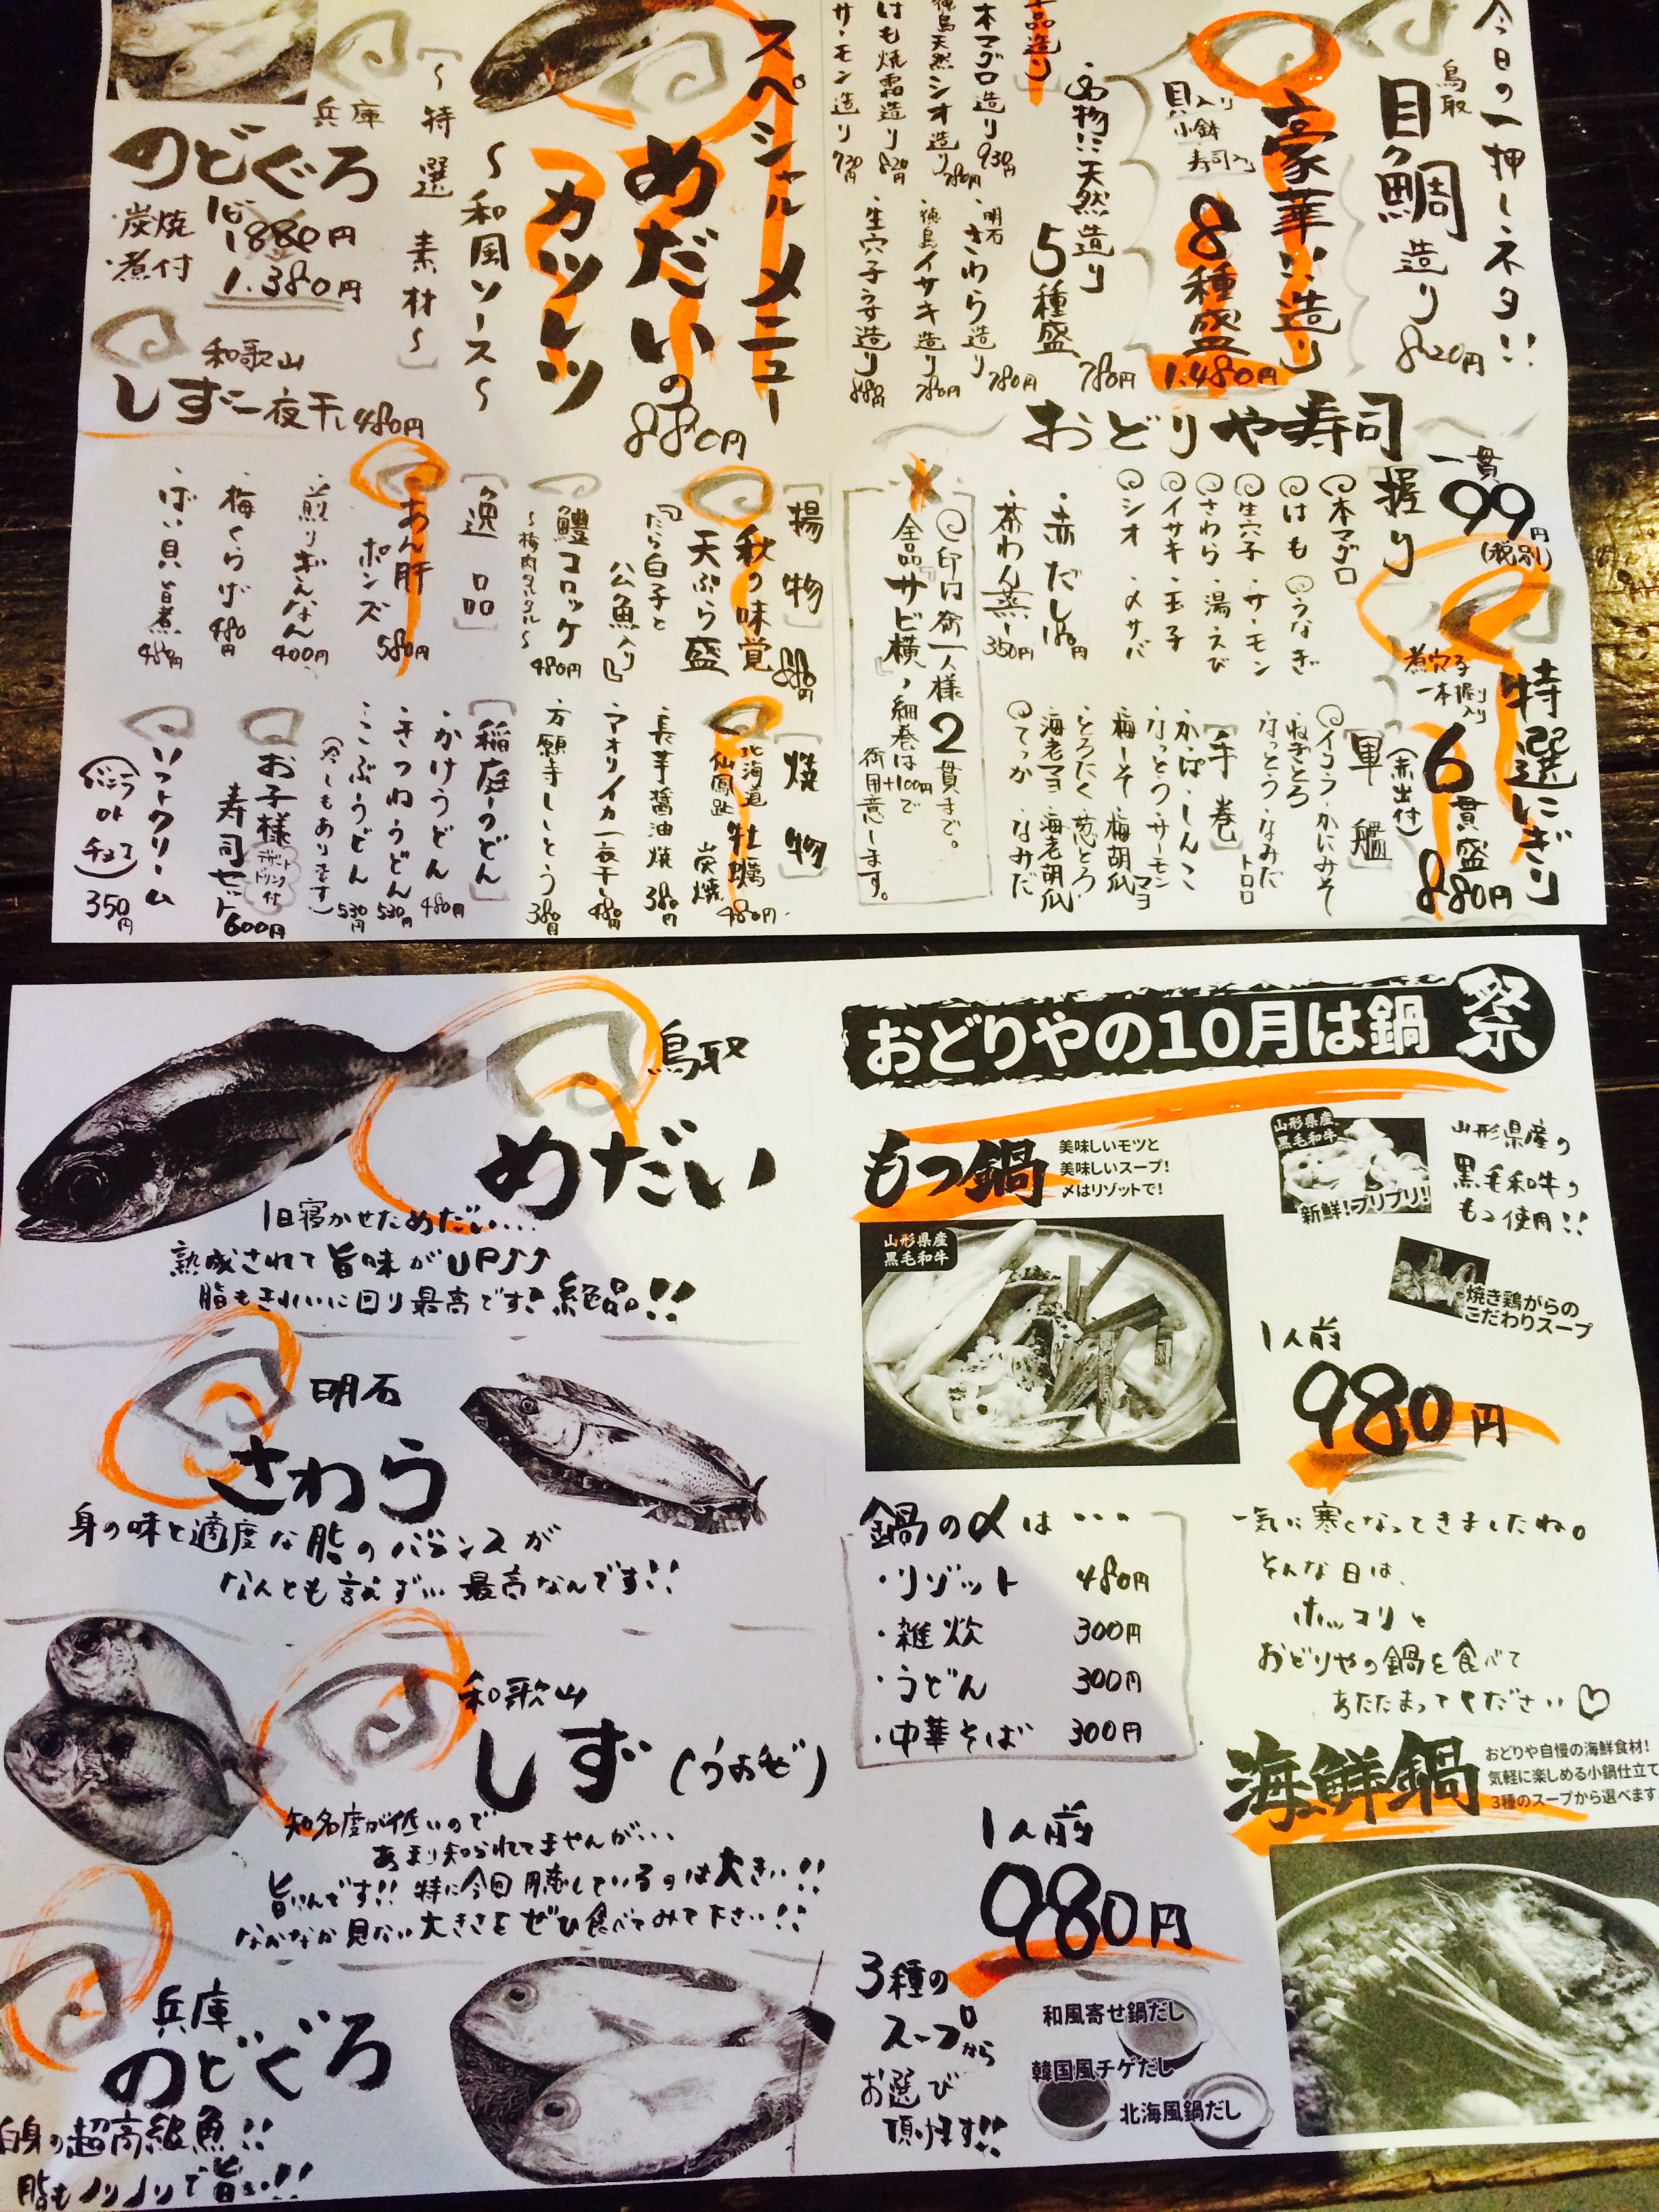 今日の一押しネタ!!
鳥取
目鯛造り
820円
豪華い造り
貝入り
小鉢
寿司入
8種盛
1.480円
名物!!天然造り
5種盛
780円
本マグロ造り 930円
明石
さわら造り 780円
徳島天然シオ造り 780円
徳島イサキ造り 780円
はも焼霜造り 820円
生穴子造り
サーモン造り 730円
スペシャルメニュー
めだいの
カツレツ
880円
〜和風ソース〜
〔〜特選素材〜〕
兵庫
のどぐろ
・炭焼
・煮付
1880円
1.380円
和歌山
しず一夜干し 480円
おどりや寿司
一貫
99円
(税別)
握り
本マグロ
はも
うなぎ
生穴子・サーモン
さわら・湯えび
イサキ・玉子
シオ・〆サバ
・赤だし 180円
・茶わん蒸し 350円
特選にぎり
煮穴子
一本握り入り
6貫盛
(赤出付)
880円
〔軍艦〕
イクラ・かにみそ
・ねぎとろ
・なっとう・なみだ
〔手巻〕
トロロ
・かっぱ・しんこ
・なっとう・サーモンマヨ
・梅しそ・梅胡瓜
・とろたく・葱とろ
・海老マヨ・海老胡瓜
てっか・なみだ
印は御一人様2貫まで。
全品『サビ横』、細巻は+100円で
御用意します。
〔揚物〕
秋の味覚
天ぷら盛
880円
『たら白子と
公魚入り』
鱧コロッケ
〜梅肉タルタル〜
480円
〔焼物〕
北海道
仙鳳趾
牡蠣
炭焼
480円
・長芋醤油焼 380円
・アオリイカ一夜干し 480円
・万願寺ししとう 380円
〔逸品〕
あん肝
ポンズ
580円
・煎りぎんなん 400円
・梅くらげ 480円
・ばい貝旨煮 480円
〔稲庭うどん〕
・かけうどん 480円
・きつねうどん 530円
・こぶうどん 530円
(冷しもあります)
お子様
寿司セット
ドリンク付
600円
ソフトクリーム
(バニラ or チョコ)
350円
鳥取
めだい
1日寝かせためだい...
熟成されて旨味がUP↑↑
脂もきれいに回り最高です!絶品!!
明石
さわら
身の味と適度な脂のバランスが
なんとも言えず... 最高なんです!!
和歌山
しず(うおぜ)
知名度が低いので
あまり知られてませんが...
旨いんです!! 特に今回用意しているのは大きい!!
なかなか見ない大きさをぜひ食べてみて下さい!!
兵庫
のどぐろ
白身の超高級魚!!
脂もノリノリで旨い!!
おどりやの10月は鍋祭
もつ鍋
美味しいモツと
美味しいスープ!
〆はリゾットで!
山形県産
黒毛和牛
新鮮!プリプリ!
山形県産の
黒毛和牛の
もつ使用!!
山形県産
黒毛和牛
焼き鶏がらの
こだわりスープ
1人前
980円
鍋の〆は・・・
・リゾット 480円
・雑炊 300円
・うどん 300円
・中華そば 300円
一気に寒くなってきましたね。
そんな日は、
ホッコリと
おどりやの鍋を食べて
あたたまってください♡
海鮮鍋
おどりや自慢の海鮮食材!
気軽に楽しめる小鍋仕立て
3種のスープから選べます
1人前
980円
3種の
スープから
お選び
頂けます!!
和風寄せ鍋だし
韓国風チゲだし
北海風鍋だし